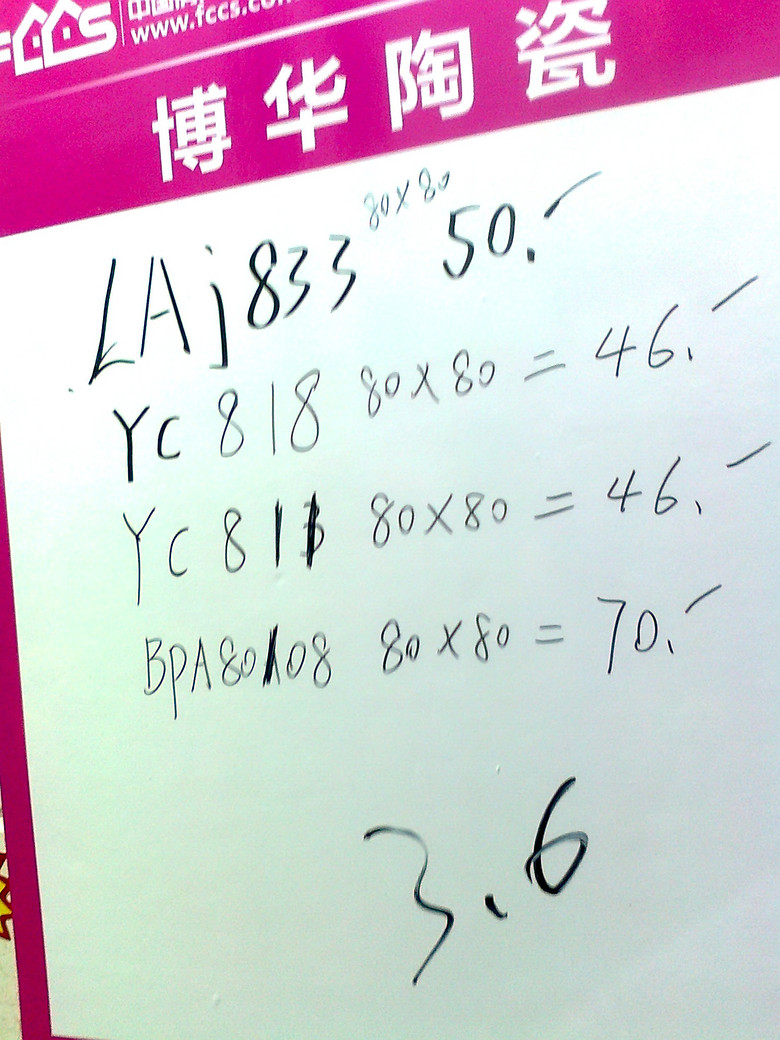 FCCS
www.fccs.co
博华陶瓷
LAj833 80×80 50.-
YC 818 80×80 = 46.-
YC 811 80×80 = 46.-
BPA80108 80×80 = 70.-
3.6